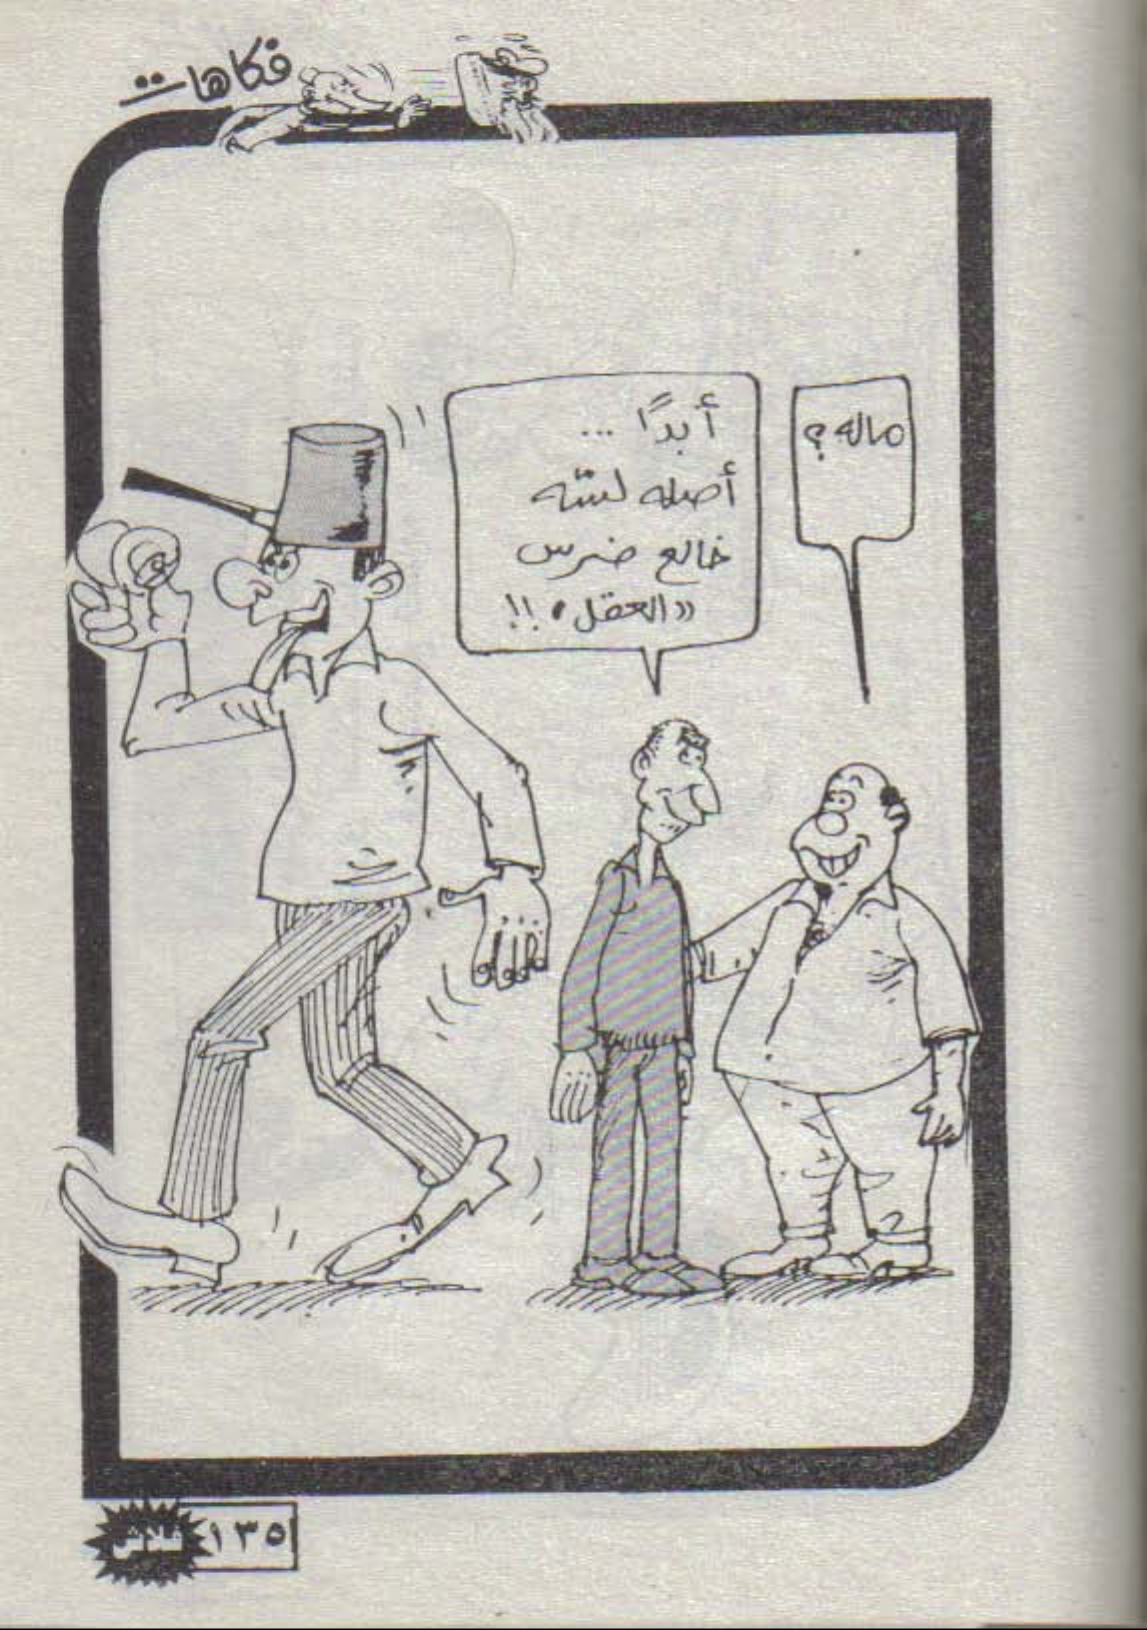 فكاهات
ماله؟
أبدًا ...
أصله لسّه
خالع ضرس
«العقل» !!
١٣٥
فلاش